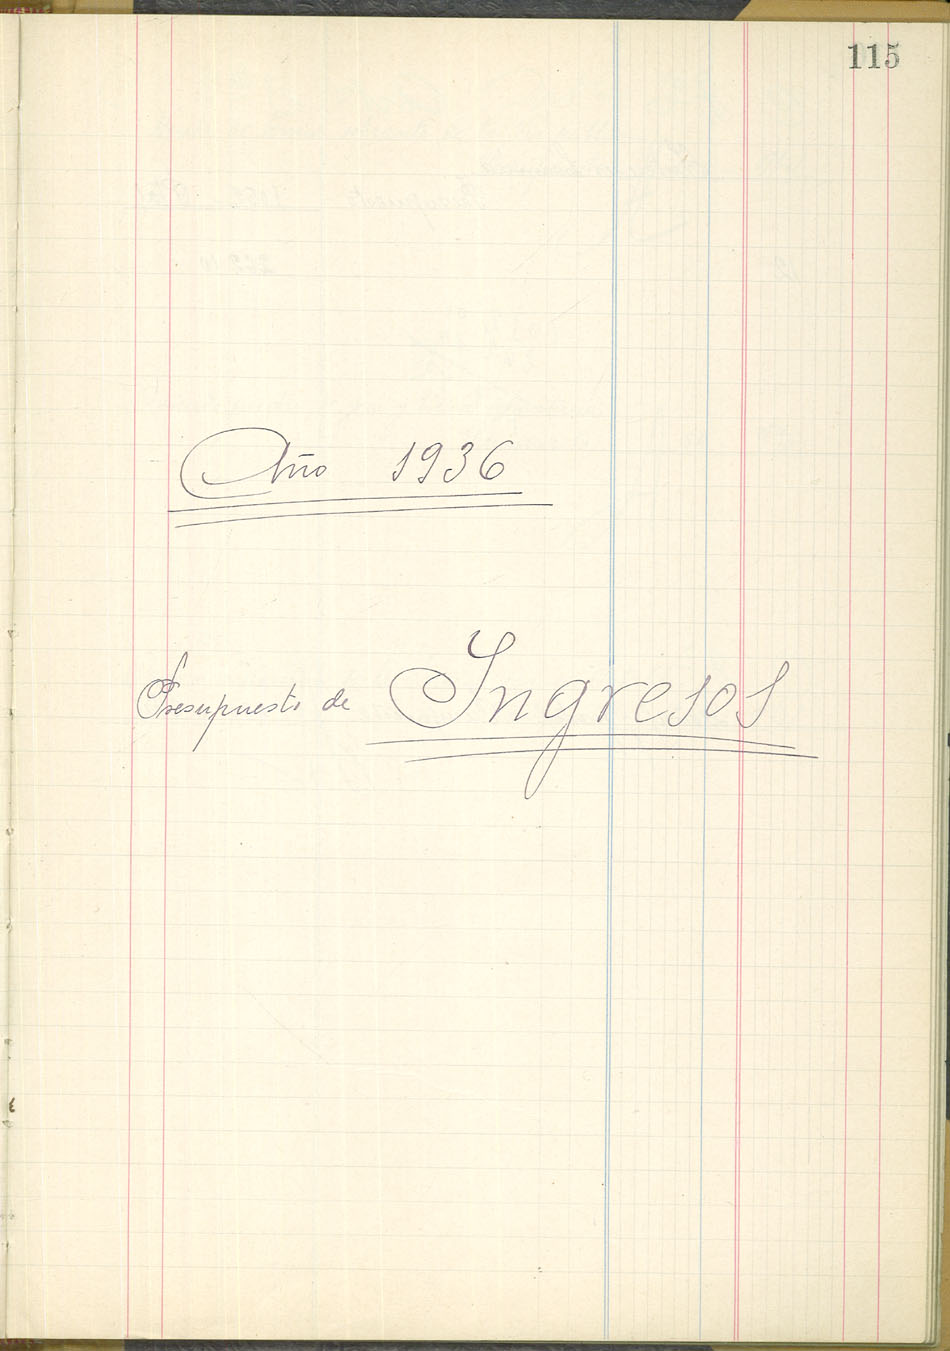 115
Año 1936
Presupuesto de Ingresos